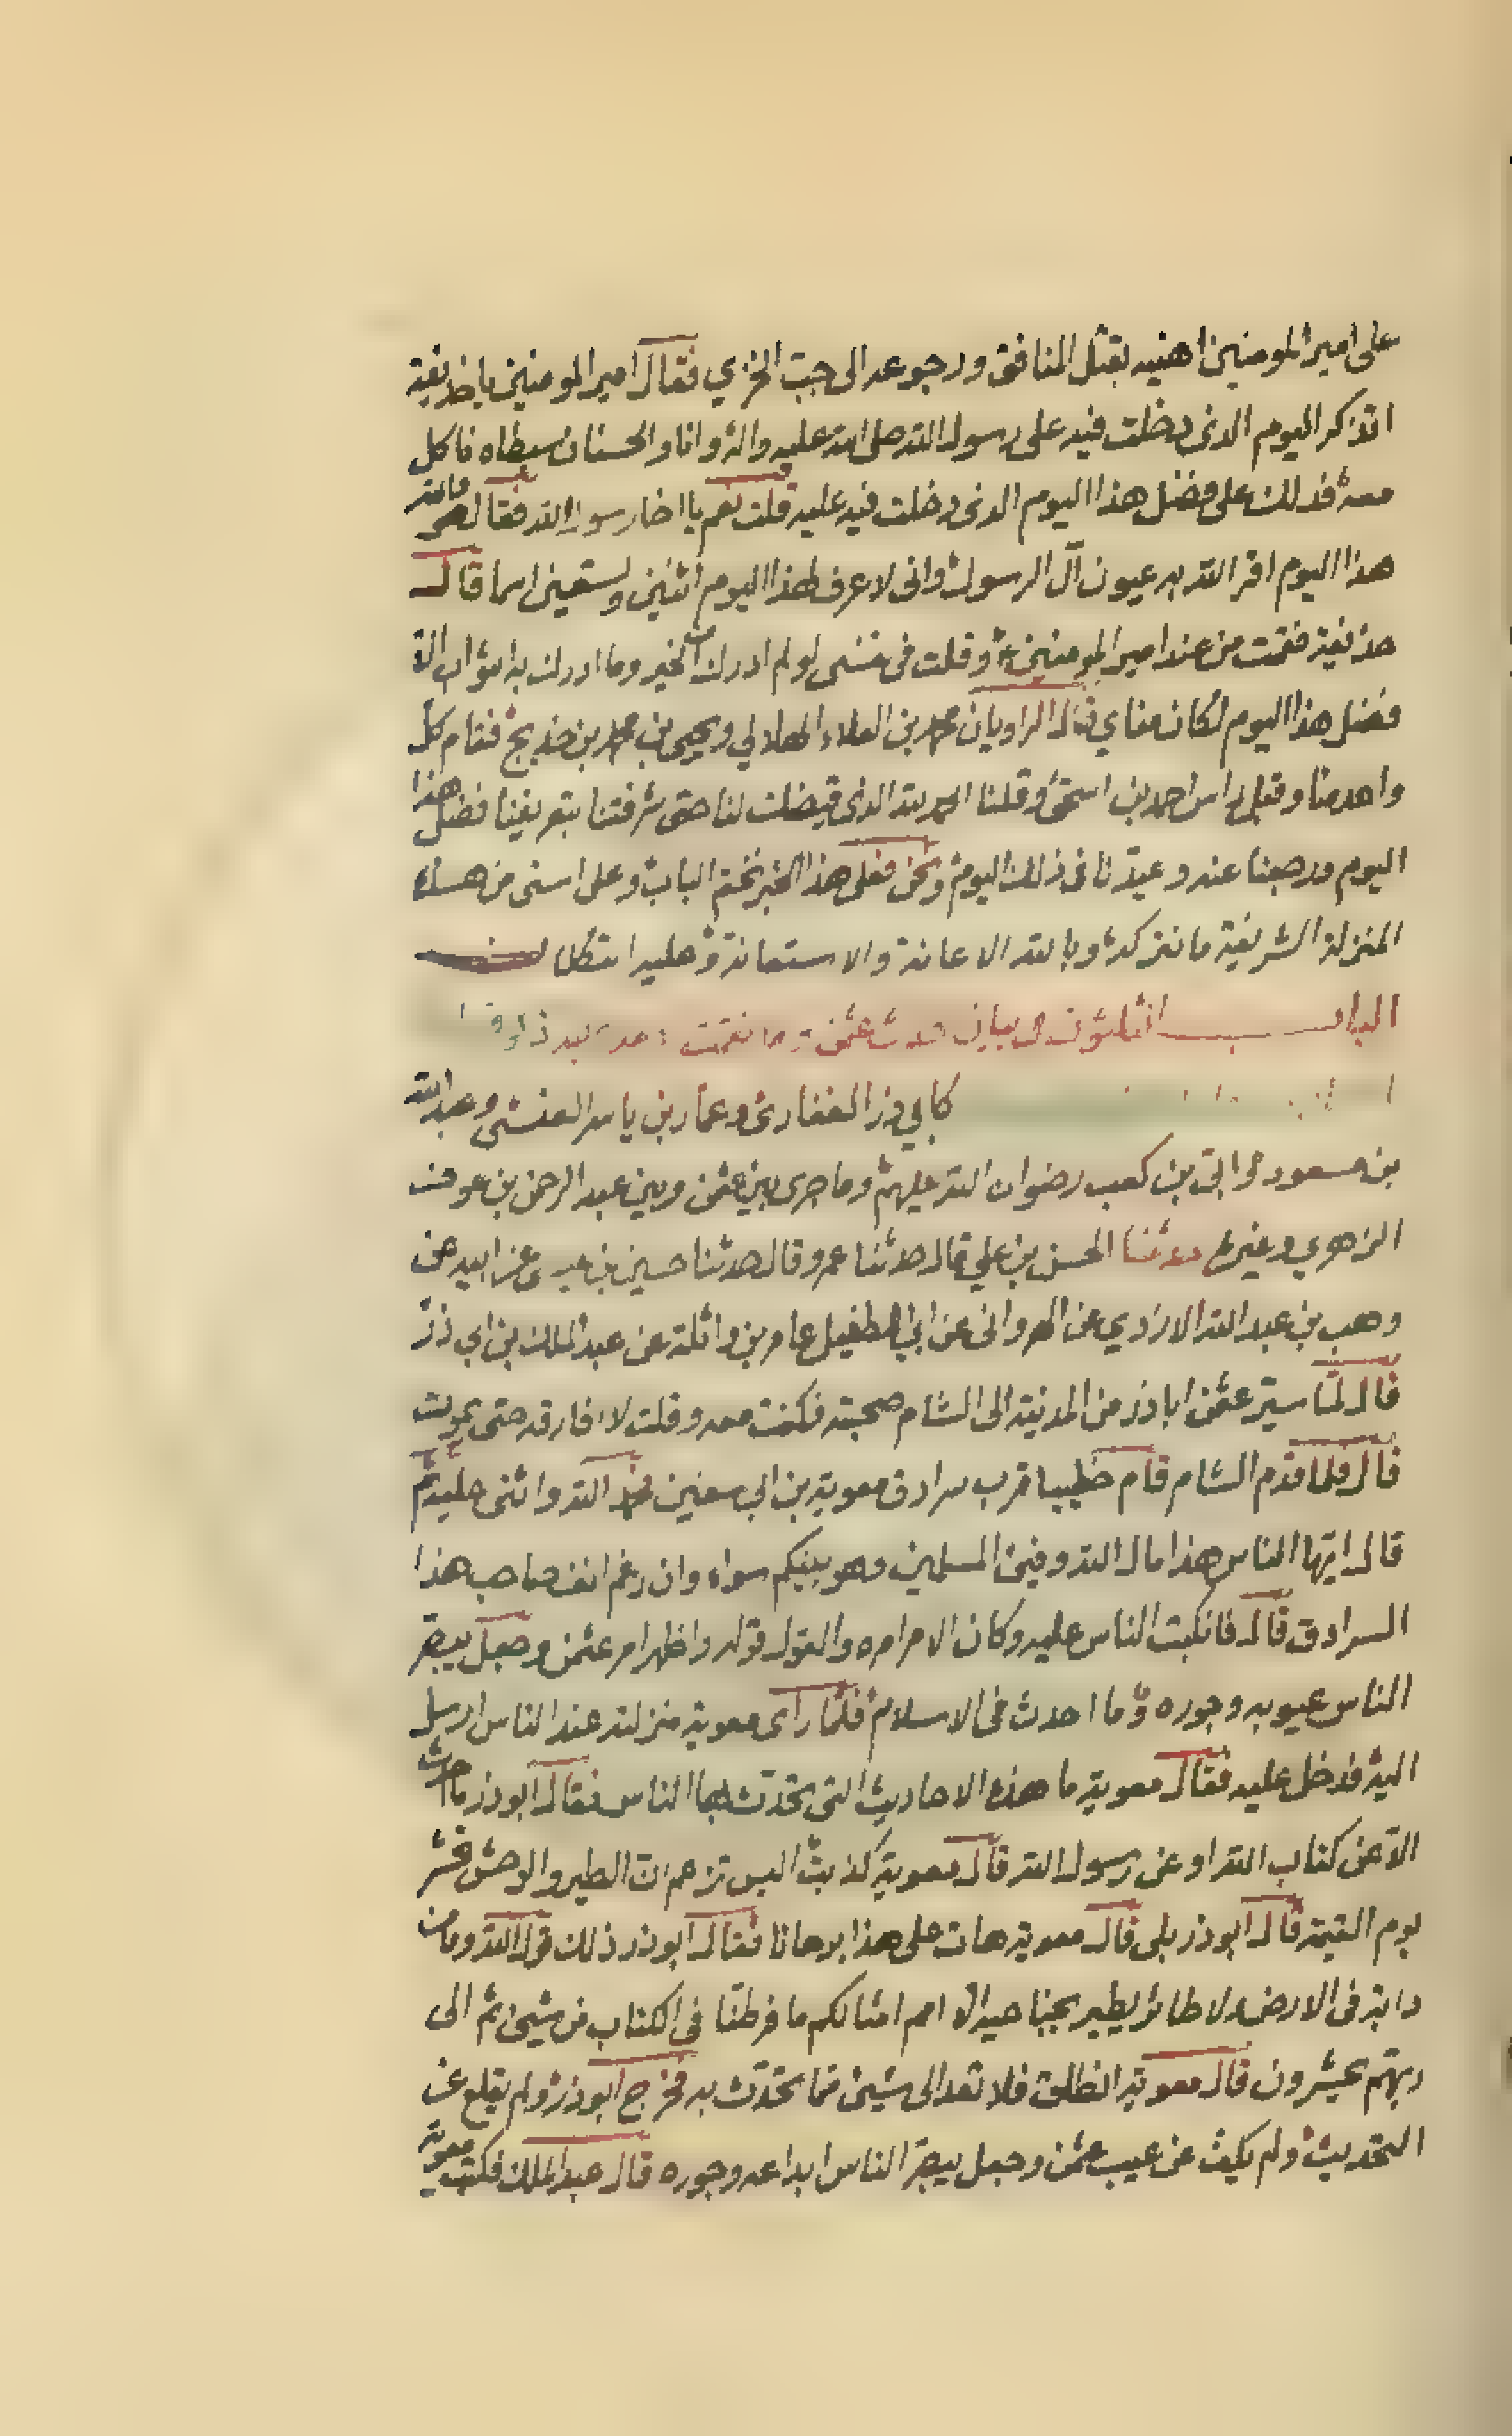 على امير المومنين اهنيه بقتل المنافق ورجوعه الى جبت الخزي فقال امير المومنين يا حذيفة
اتذكر اليوم الذى دخلت فيه على رسول الله صلى الله عليه واله وانا والحسنان سبطاه ناكل
معه فدلك على فضل هذا اليوم الذى دخلت فيه عليه قلت نعم يا اخا رسول الله فقال هو والله
هذا اليوم اقر الله به عيون آل الرسول وانى لاعرف لهذا اليوم اثنين وسبعين اسما قال
حذيفة فقمت من عند امير المومنين وقلت فى نفسى لو لم ادرك من الخير وما ادرك به الثواب الا
فضل هذا اليوم لكان مناي قال الراويان محمد بن العلاء الهمدانى ويحيى بن محمد بن خديج فقام كل
واحد منا وقبل راس احمد بن اسحق وقلنا الحمد لله الذى قيضك لنا حتى شرفتنا بتعريفنا فضل هذا
اليوم ورجعنا عنه وعيدنا فى ذلك اليوم ونحن فعلى هذا الخبر نختم الباب وعلى اسنى من هذه
المنزلة الشريفة ما نتركه وبالله الاعانة والاستعانة وعليه اتكل
الباب الثلثون فى بيان
كابي ذر الغفارى وعمار بن ياسر العنسى وعبد الله
بن مسعود وابى بن كعب رضوان الله عليهم وما جرى بين عثمن وبين عبد الرحمن بن عوف
الزهوي وغيره حدثنا الحسن بن علي قال حدثنا عمرو قال حدثنا حسين بن عن ابيه عن
وهب بن عبد الله الازدي عن عن ابى الطفيل عامر بن واثلة عن عبد الملك بن ابى ذر
قال لما سير عثمن اباذر من المدينة الى الشام صحبته فكنت معه وقلت لا افارقه حتى يموت
قال فلما قدم الشام قام خطيبا قرب سرادق معوية بن ابى سفين فحمد الله واثنى عليه ثم
قال ايها الناس هذا مال الله وفيئ المسلمين وهو بينكم سواء وان رغم انف صاحب هذا
السرادق قال فانكبت الناس عليه وكان الامر امره والقول قوله واظهر امر عثمن وجعل يبصر
الناس عيوبه وجوره وما احدث فى الاسلام فلما راى معوية منزلته عند الناس ارسل
اليه فدخل عليه فقال معوية ما هذه الاحاديث التى تحدث بها الناس فقال ابوذر ما احدث
الا عن كتاب الله او عن رسول الله قال معوية كذبت اليس تزعم ان الطير والوحش تحشر
يوم القيمة قال ابوذر بلى قال معوية هات على هذا برهانا فقال ابوذر ذلك قول الله وما من
دابة فى الارض ولا طائر يطير بجناحيه الا امم امثالكم ما فرطنا فى الكتاب من شيئ ثم الى
ربهم يحشرون قال معوية انطلق فلا تعد الى شيئ مما تحدث به فخرج ابوذر ولم يقلع عن
التحديث ولم يكف عن عيب عثمن وجعل يبصر الناس ابداعه وجوره قال عبد الملك فكتب معوية